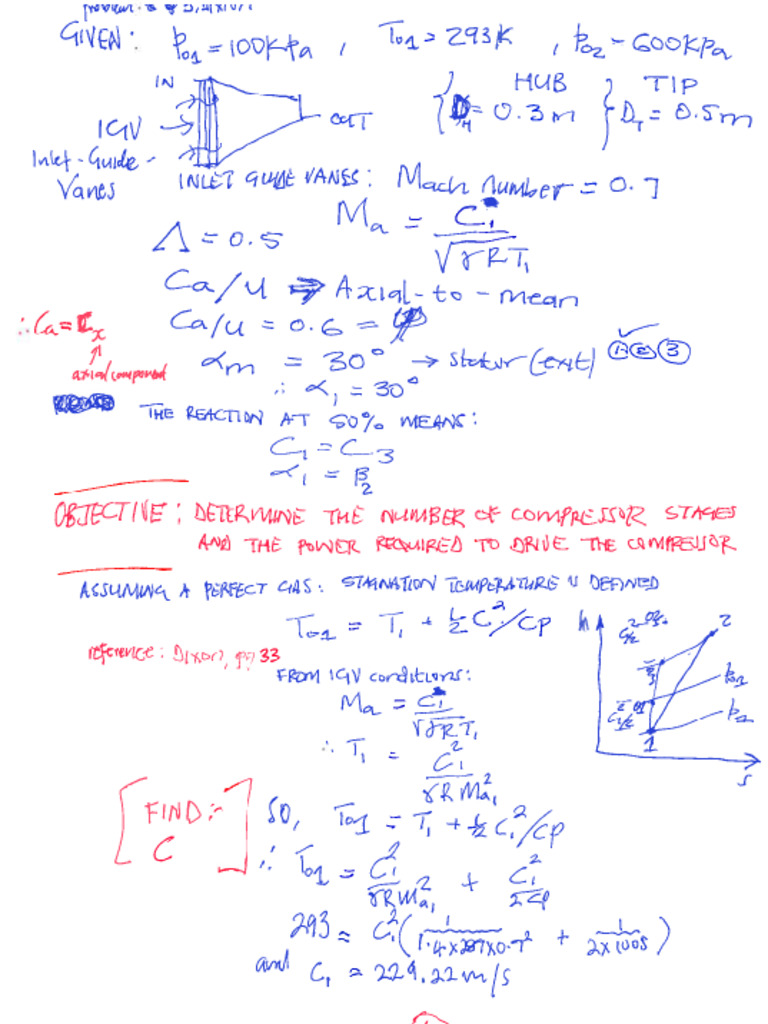 GIVEN: P₀₁ = 100KPa, T₀₁ = 293K, P₀₂ = 600KPa
IN
OUT
IGV
Inlet-Guide-
Vanes
HUB TIP
D_H = 0.3m D_T = 0.5m
INLET GUIDE VANES: Mach number = 0.7
Ma = C₁/√γRT₁
Λ = 0.5
Ca/U ⇒ Axial-to-mean
∴ Ca = Cx
axial component
Ca/U = 0.6 = φ
αm = 30° → stator (exit) ① ② ③
∴ α₁ = 30°
THE REACTION AT 50% MEANS:
C₁ = C₃
α₁ = β₂
OBJECTIVE: DETERMINE THE NUMBER OF COMPRESSOR STAGES
AND THE POWER REQUIRED TO DRIVE THE COMPRESSOR
ASSUMING A PERFECT GAS: STAGNATION TEMPERATURE IS DEFINED
T₀₁ = T₁ + ½C²/Cp
reference: Dixon, pg 33
FROM IGV conditions:
Ma = C₁/√γRT₁
∴ T₁ = C₁²/γRMa₁²
h
2
P₀₁
1
s
[FIND:- C]
SO, T₀₁ = T₁ + ½C₁²/Cp
∴ T₀₁ = C₁²/γRMa₁² + C₁²/2Cp
293 = C₁²(1/1.4×287×0.7² + 1/2×1005)
and C₁ = 229.22 m/s